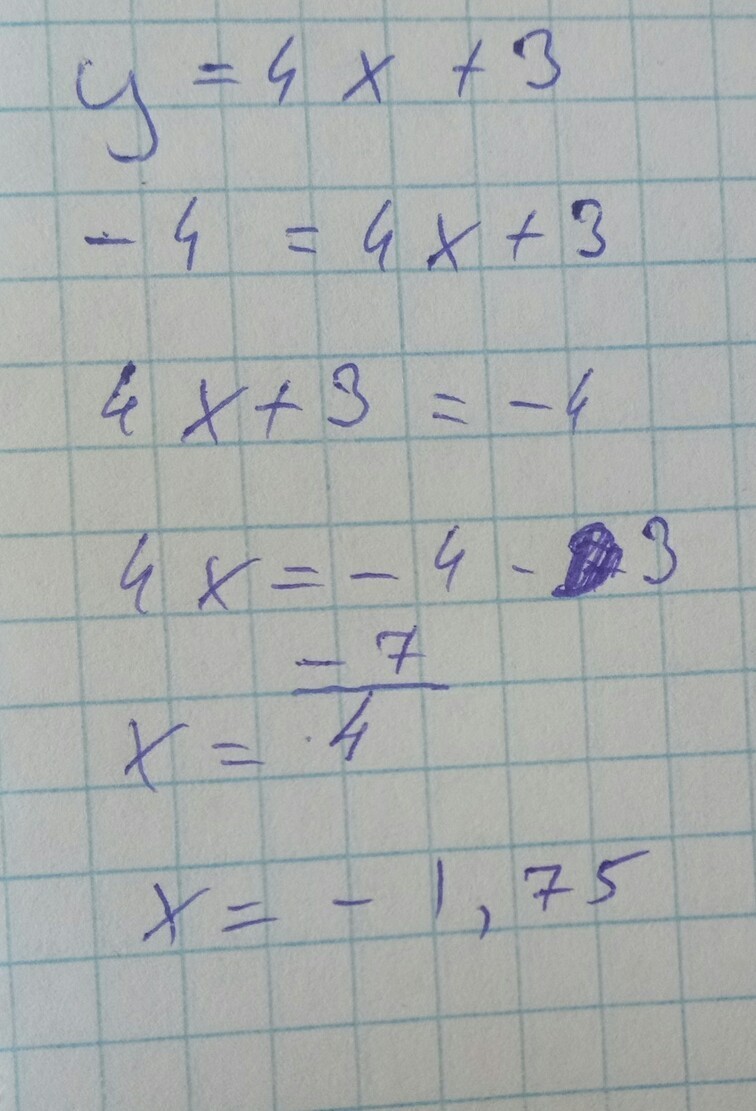 y = 4x + 3
- 4 = 4x + 3
4x + 3 = - 4
4x = - 4 - 3
x = -7/4
x = - 1,75